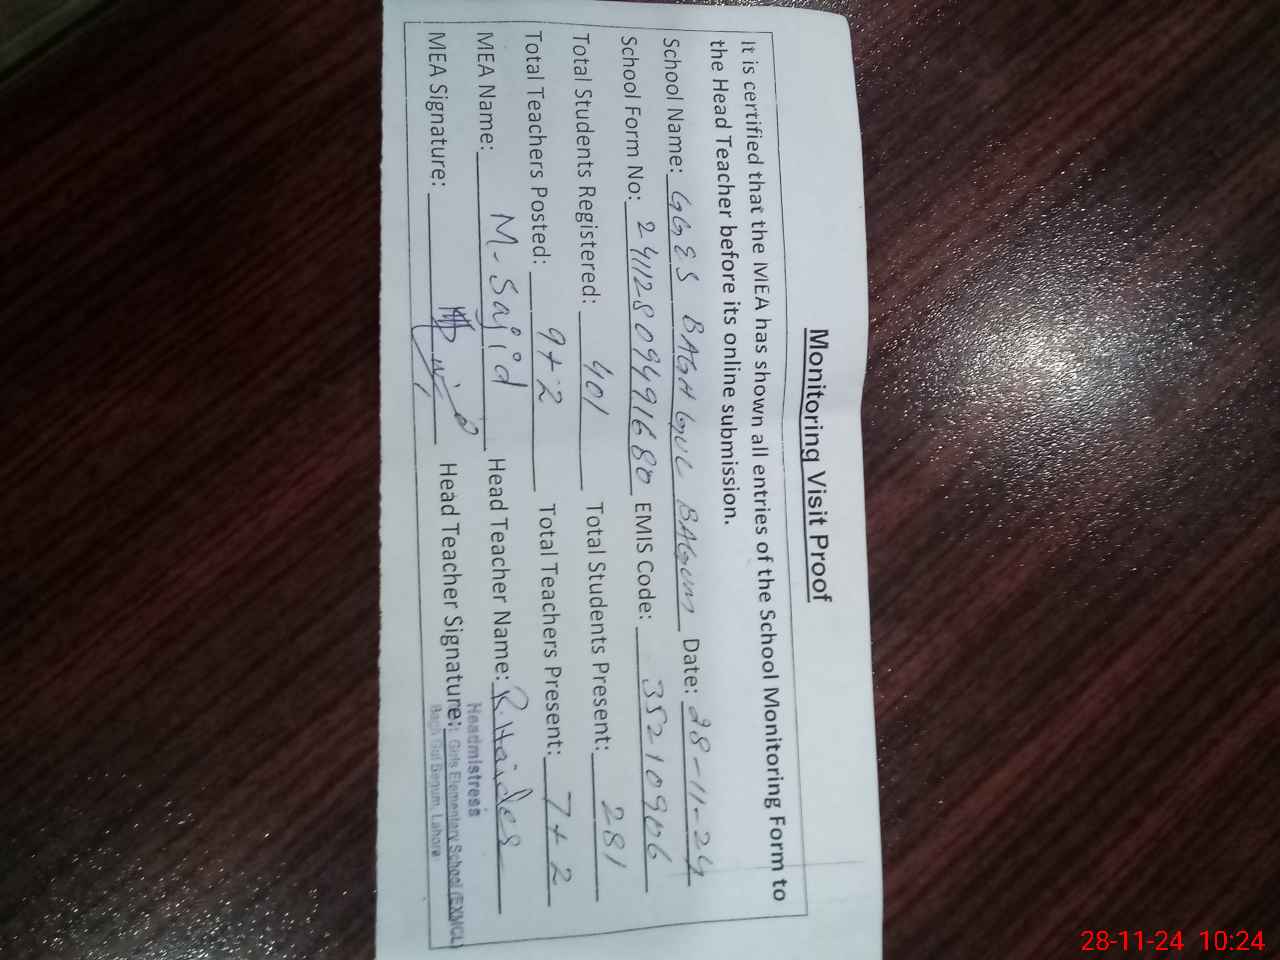 Monitoring Visit Proof
It is certified that the MEA has shown all entries of the School Monitoring Form to
the Head Teacher before its online submission.
School Name: GGES BAGH GUL BAGUM Date: 28-11-24
School Form No: 24112809491680 EMIS Code: 35210906
Total Students Registered: 401 Total Students Present: 281
Total Teachers Posted: 9+2 Total Teachers Present: 7+2
MEA Name: M. Sajid Head Teacher Name: R. Haider
MEA Signature: Head Teacher Signature:
Headmistress
Girls Elementary School (EXMCL)
Bagh Gul Begum, Lahore
28-11-24 10:24